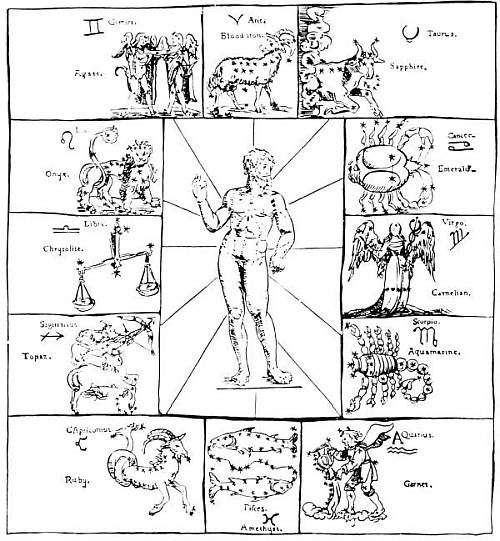 Gemini.
Agate.
Arie.
Bloodston.
Taurus.
Sapphire.
Leo
Onyx.
Cancer
Emerald
Libra.
Chrysolite.
Virgo.
Carnelian.
Sagittarius
Topaz.
Scorpio.
Aquamarine.
Capricornus.
Ruby.
Pisces.
Amethyst.
Aquarius.
Garnet.